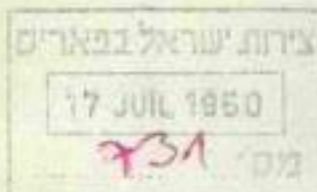 צירות ישראל בפאריס
17 JUIL 1950
731
מס'